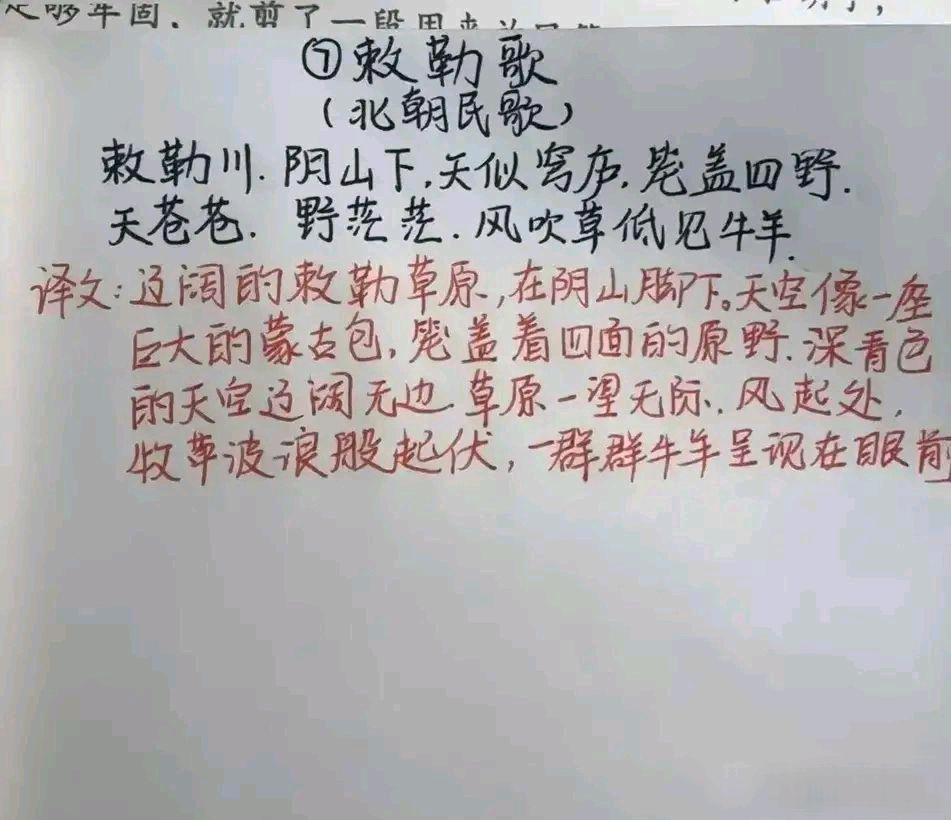 足够牢固，就剪了一段用来
⑦敕勒歌
（北朝民歌）
敕勒川.阴山下.天似穹庐.笼盖四野.
天苍苍.野茫茫.风吹草低见牛羊.
译文:辽阔的敕勒草原,在阴山脚下。天空像一座
巨大的蒙古包,笼盖着四面的原野.深青色
的天空辽阔无边.草原一望无际.风起处,
牧草波浪般起伏,一群群牛羊呈现在眼前